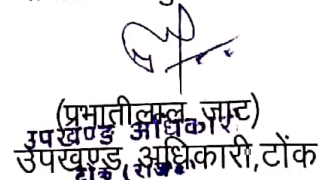 (प्रभातीलाल जाट)
उपखण्ड अधिकारी
उपखण्ड अधिकारी,टोंक
टोंक (राज.)